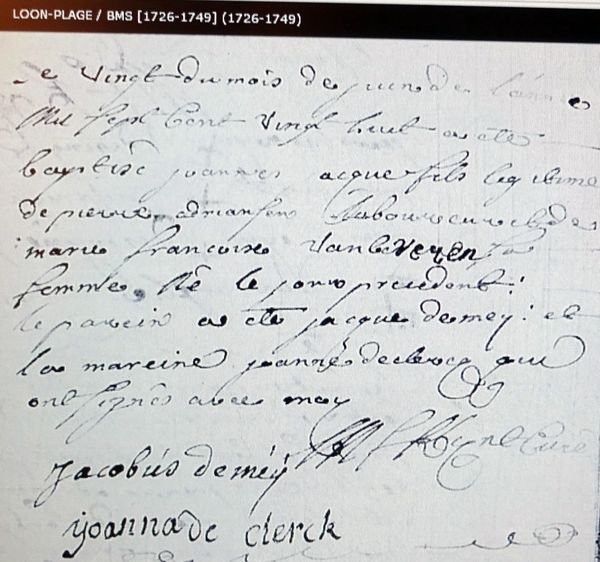 LOON-PLAGE / BMS [1726-1749] (1726-1749)
Le vingt du mois de juin de l'année
Mil sept Cent vingt huit a eté
baptisé joannes acque fils legitime
de pierre adriansens labourreur et de
marie francoise Vanbeveren sa
femme né le jour precedent:
le parein a eté jacque demey: et
la mareine joanne declercq qui
ont signés avec moy
Curé
Jacobús deméÿ
yoanna de clerck